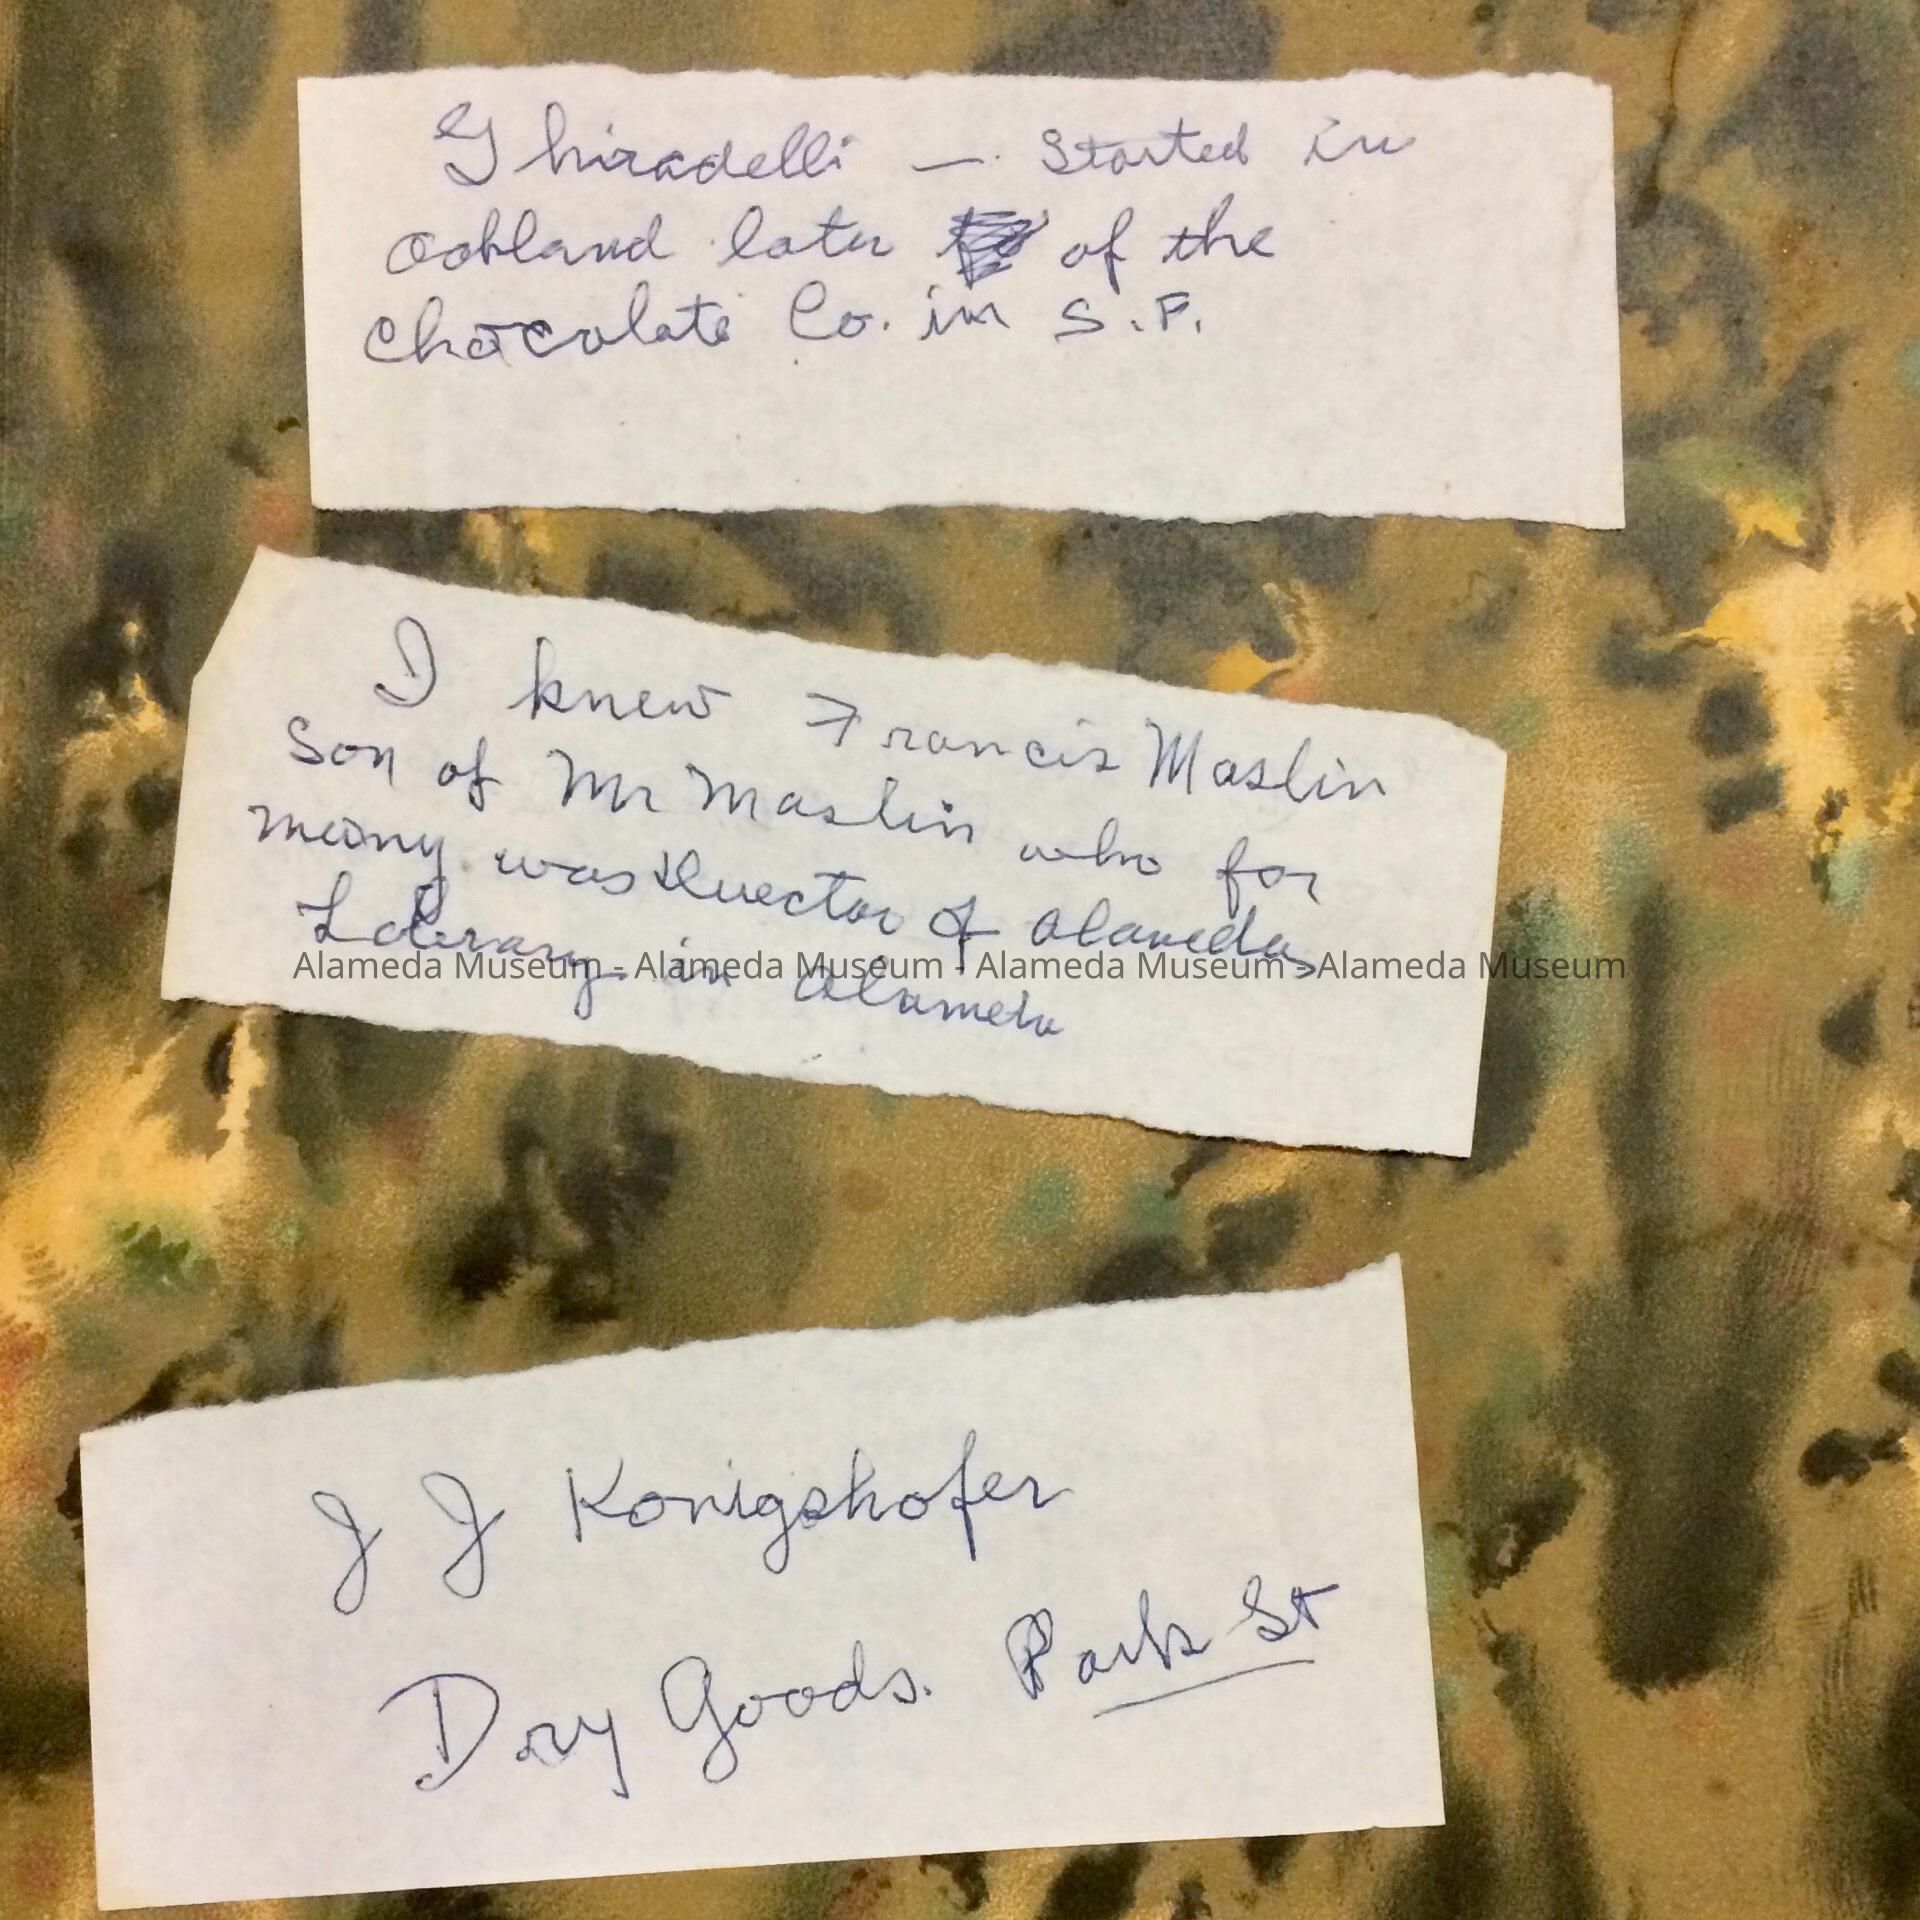 Ghiradelli — Started in
Oakland later of the
Chocolate Co. in S.F.
I knew Francis Maslin
Son of Mr Maslin who for
many was Director of Alameda
Library in Alameda
Alameda Museum - Alameda Museum - Alameda Museum - Alameda Museum
J J Konigshofer
Dry Goods. Park St